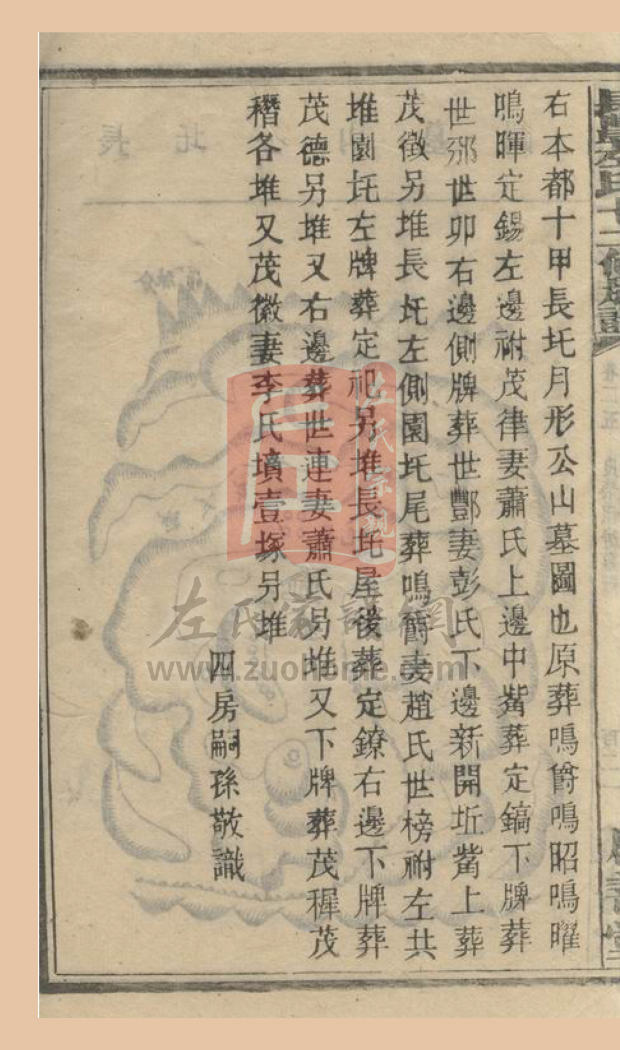 右本都十甲長圫月形公山墓圖也原葬鳴爵鳴昭鳴曜
鳴暉定錫左邊祔茂律妻蕭氏上邊中觜葬定鎬下牌葬
世邠世卯右邊側牌葬世酆妻彭氏下邊新開坵觜上葬
茂徵另堆長圫左側園圫尾葬鳴爵妻趙氏世榜祔左共
堆園圫左牌葬定祀另堆長圫屋後葬定鐐右邊下牌葬
茂德另堆又右邊葬世連妻蕭氏另堆又下牌葬茂穉茂
穭各堆又茂徽妻李氏墳壹塚另堆
四房嗣孫敬識
左氏家譜網
www.zuohome.com
左氏宗親